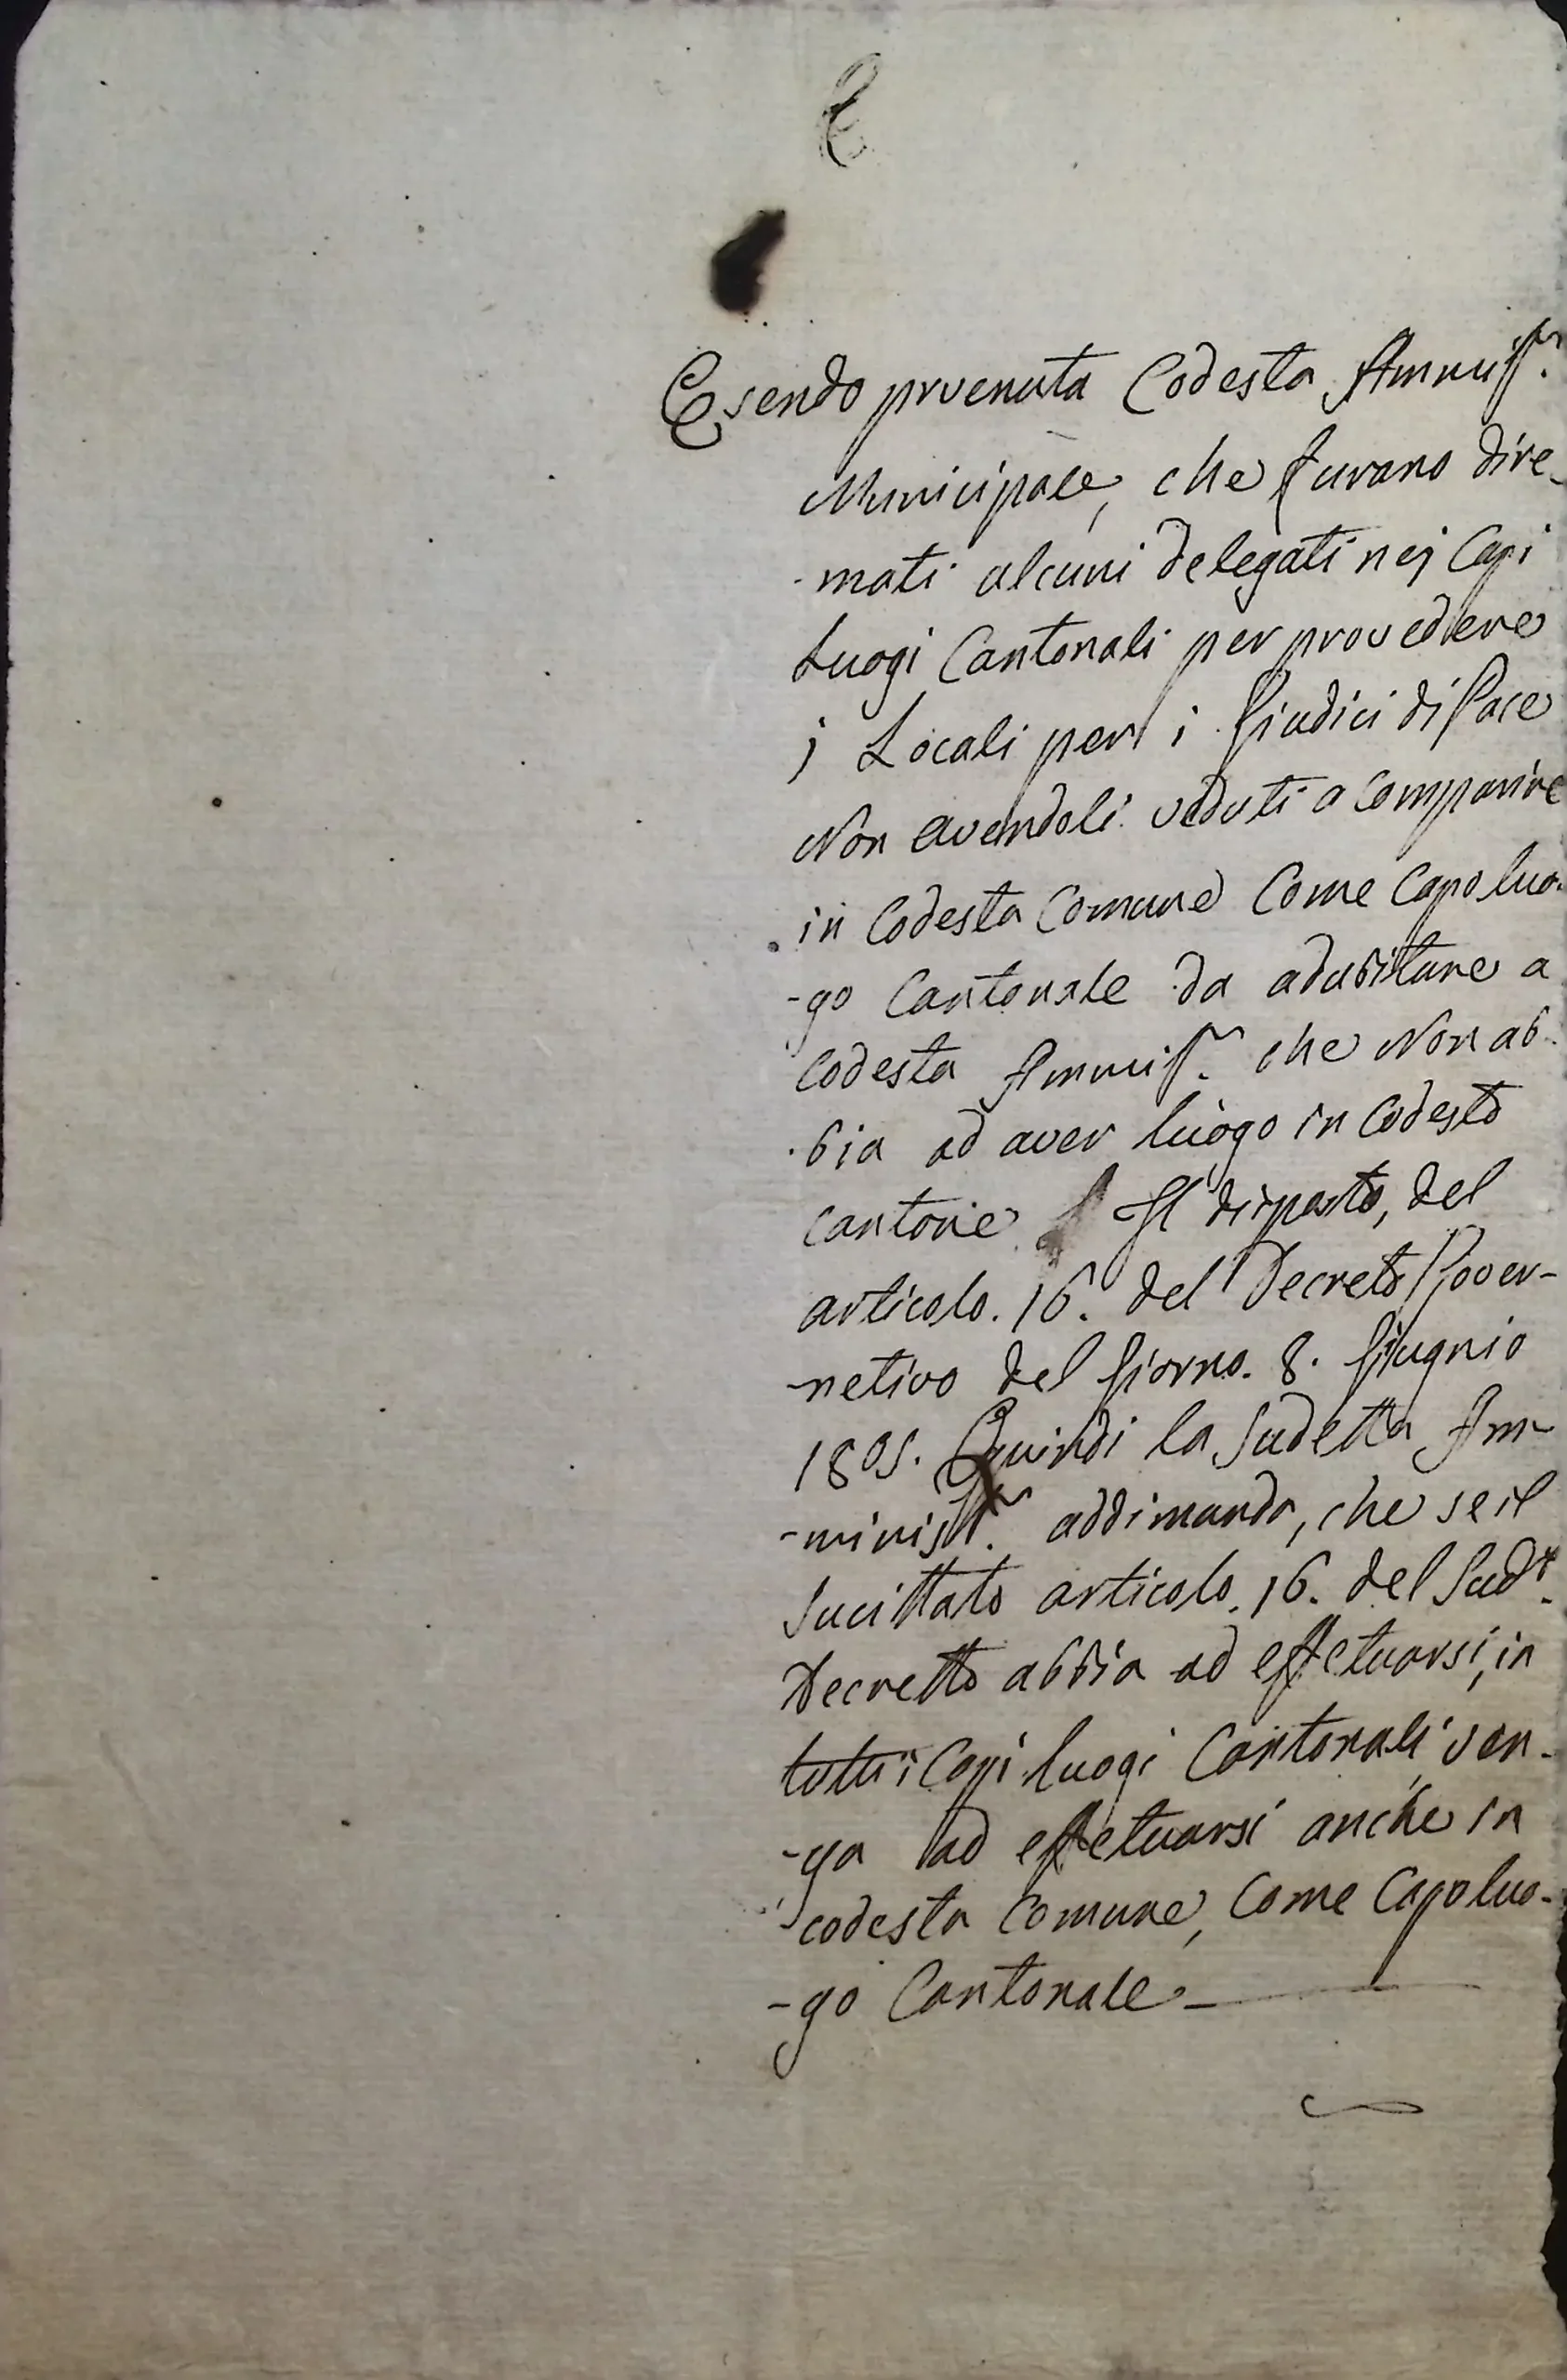 Esendo prvenuta Codesta Ammis.n
Municipale, che furano dire-
-mati alcuni delegati nej Capi
Luogi Cantonali per provedere
j Locali per i Giudici di Pace
Non avendoli veduti a comparire
in Codesta Comune Come Capo luo-
-go Cantonale da adubitare a
Codesta Ammis.n che Non ab-
-bia ad aver luogo in Codesto
cantone Il disposto, del
articolo. 16. del Decreto Gover-
-netivo del Giorno. 8. Giugnio
1805. Quindi la Sudetta Am-
-minist.n addimanda, che se il
Sucittato articolo. 16. del Sud.o
Decretto abbia ad effetuarsi, in
tutti i Capi luogi Cantonali, ven-
-ga ad effetuarsi anche in
codesta Comune, Come Capoluo-
-go Cantonale-